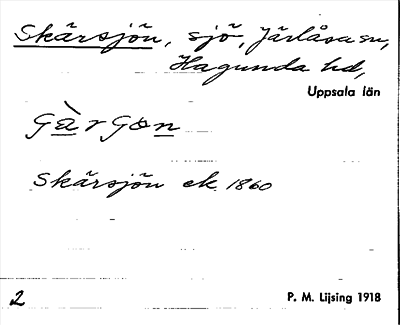 Skärsjön, sjö, Järlåsa sn,
Hagunda hd,
Uppsala län
gàrgøn
Skärsjön ek. 1860
2
P. M. Lijsing 1918